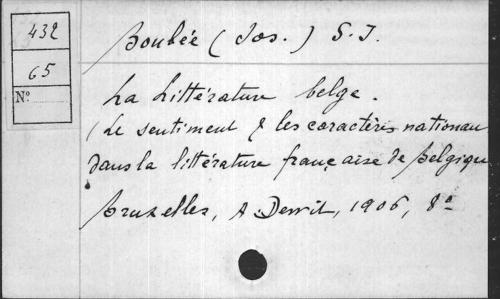 432
65
N°
Boubée (Jos.) S.J.
La Littérature belge.
(Le sentiment & les caractères nationau
dans la littérature française de Belgique
Bruxelles, A Dewit, 1906, 8°